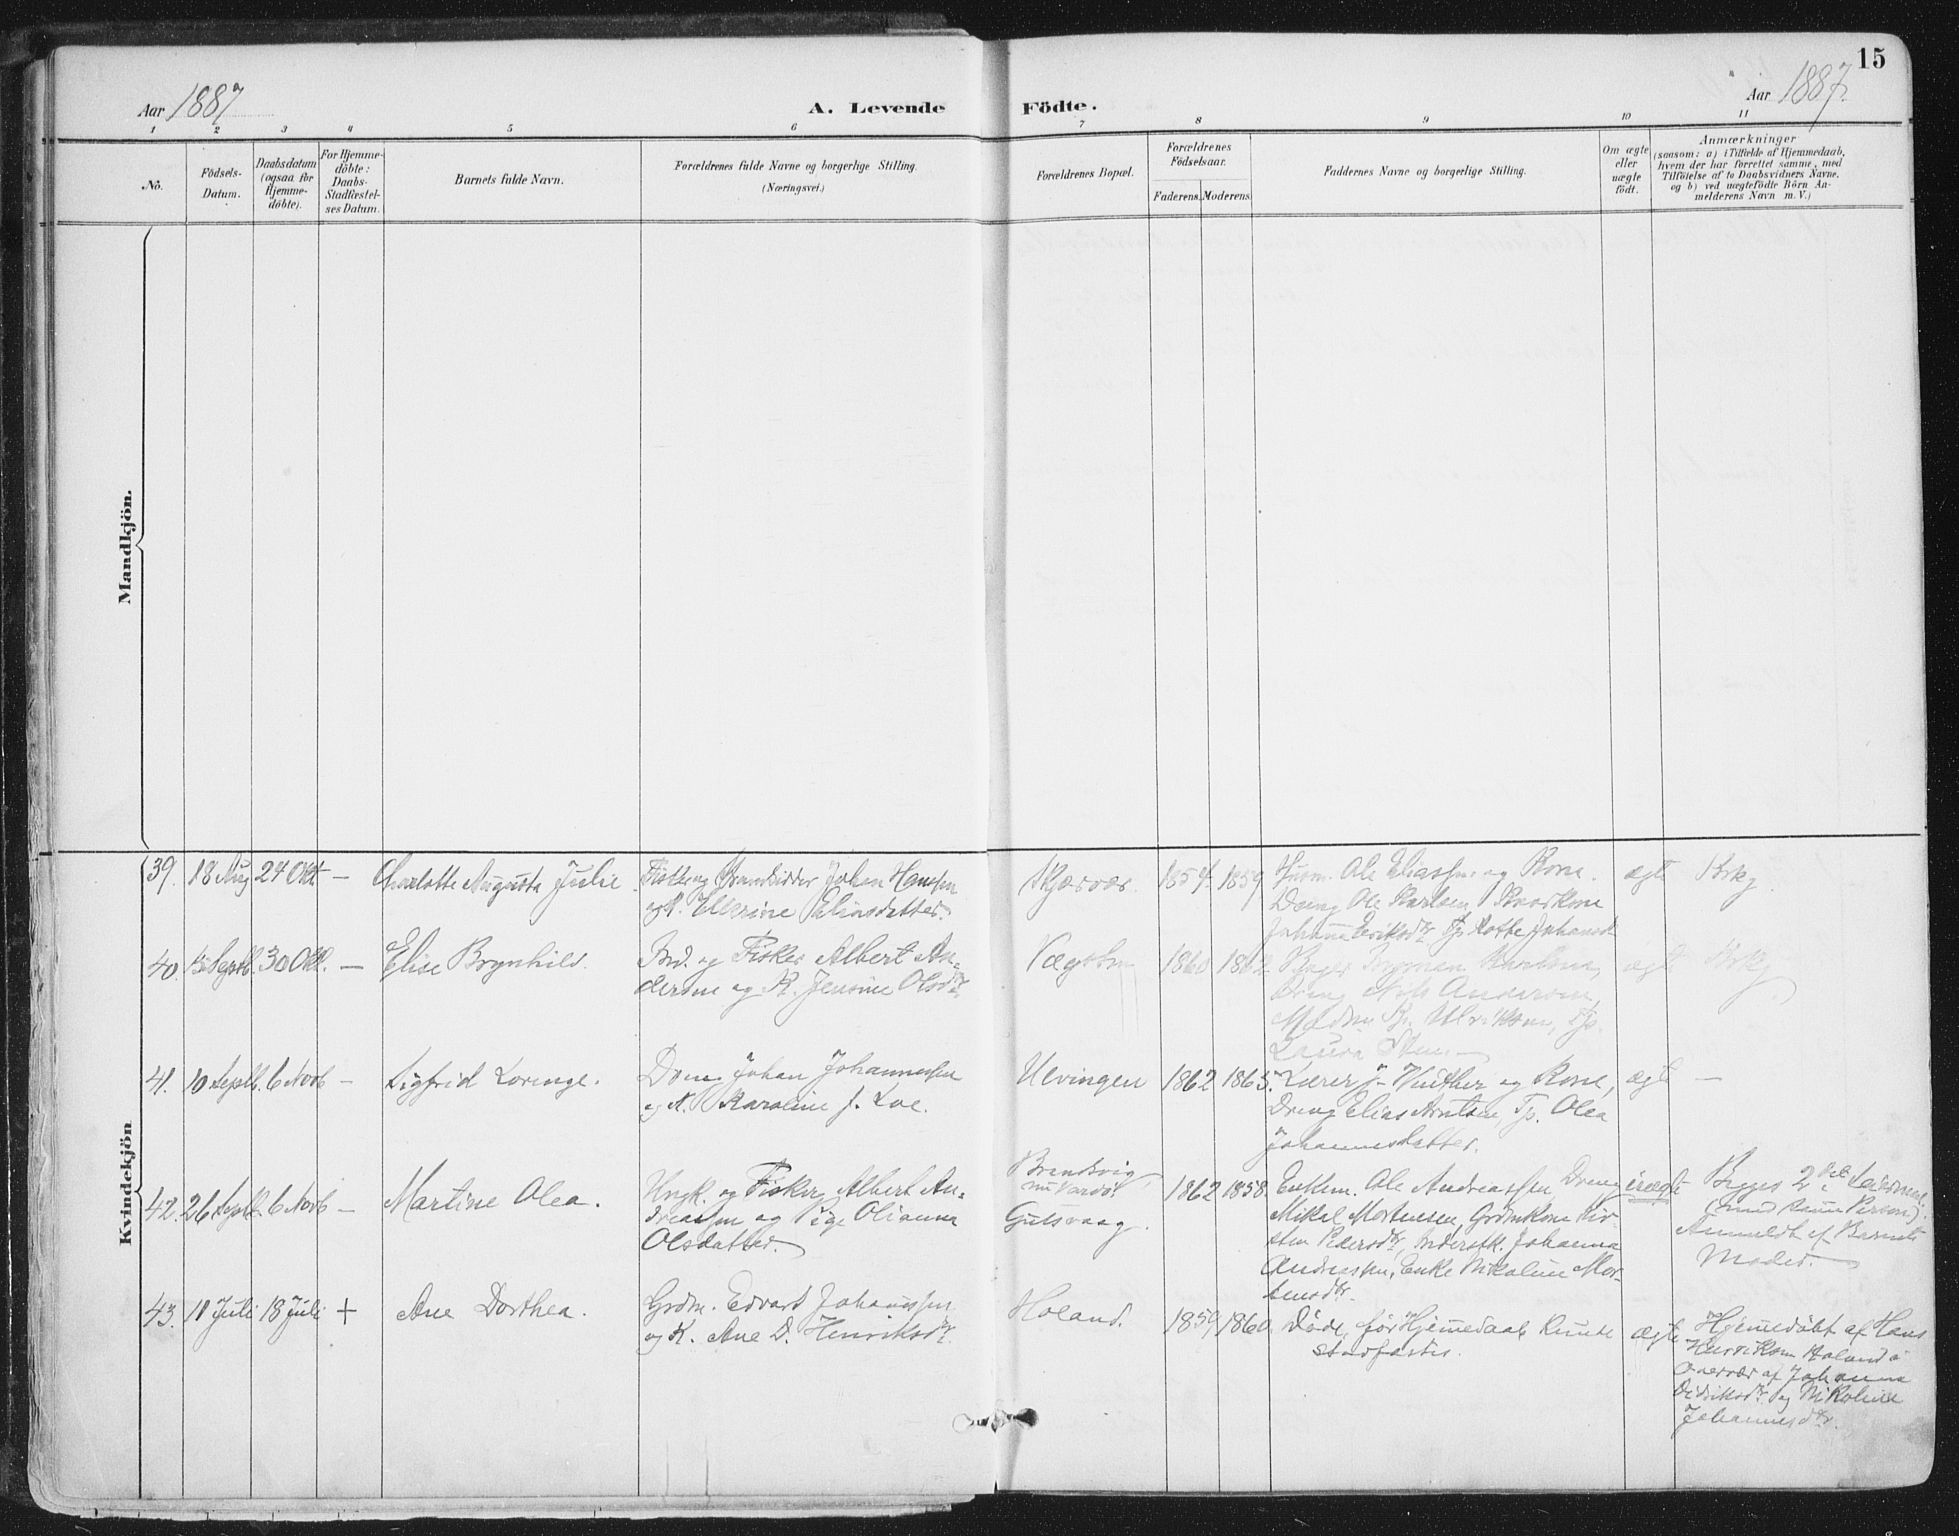 15
Aar 1887
A. Levende Födte.
Aar 1887.
1 2 3 4 5 6 7 8 9 10 11
No.
Födsels-
Datum.
Daabsdatum
(ogsaa for
Hjemme-
döbte).
For Hjemme-
döbte:
Daabs-
Stadfæstel-
ses Datum.
Barnets fulde Navn.
Forældrenes fulde Navne og borgerlige Stilling.
(Næringsvei.)
Forældrenes Bopæl.
Forældrenes
Födselsaar.
Faderens. Moderens.
Faddernes Navne og borgerlige Stilling.
Om ægte
eller
uægte
födt.
Anmærkninger
(saasom: a) i Tilfælde af Hjemmedaab,
hvem der har forrettet samme, med
Tilföielse af to Daabsvidners Navne,
og b) ved uægtefödte Börn An-
melderens Navn m. V.)
Mandkjön.
Kvindekjön
39. 18 Aug 24 Okt —
Charlotte Augusta Julie.
Fisker og Strandsidder Johan Hansen
og K. Ellerine Eliasdatter.
Skjærvær.
1854 1859
Husm. Ole Eliassen og Kone.
Dreng Ole Karlsen,
Johanna Eriksdtr Johansd
ægte
Brkg.
40. 15 Septb. 30 Okt. —
Elise Brynhild.
Ind. og Fisker Albert An-
dersen og K. Jensine Olsdtr
1860 1862
Dreng Nils Andersen,
Ulriksen, Tp.
Laura
ægte
Brkg.
41. 10 Septb. 6 Novb —
Sigfrid Lorenze.
Johan Johannessen
og K. Karoline f. Loe.
Ulvingen
1862 1865.
Lærer J. Winther og Kone,
Dreng Elias Arntsen, Tp. Olea
Johannesdatter.
ægte —
42. 26 Septb. 6 Novb —
Martine Olea.
Ungk. og Fisker Albert An-
dreassen og Pige Olianna
Olsdatter.
Brendsvig,
nu Vardö.
Gutsvaag.
1862 1858.
Enkem. Ole Andreassen, Dreng
Mikal Mortensen, Grdmkone Kir-
sten Pedersdtr, Johanna
Andreassen, Enke Nikoline Mor-
tensdtr.
uægte
Begges 2det Leiermaal
(med samme Person).
Anmeldt af Barnets
Moder.
43. 11 Juli 18 Juli +
Ane Dorthea.
Grdm. Edvart Johanssen
og K. Ane D. Henriksdtr.
Holand.
1859 1860.
Döde, før Hjemedaab kunde
stadfæstes.
ægte
Hjemedöbt af Hans
Henriksen Holand i
Overvær af Johanna
Didriksdtr. og Nikoline
Johannesdtr.